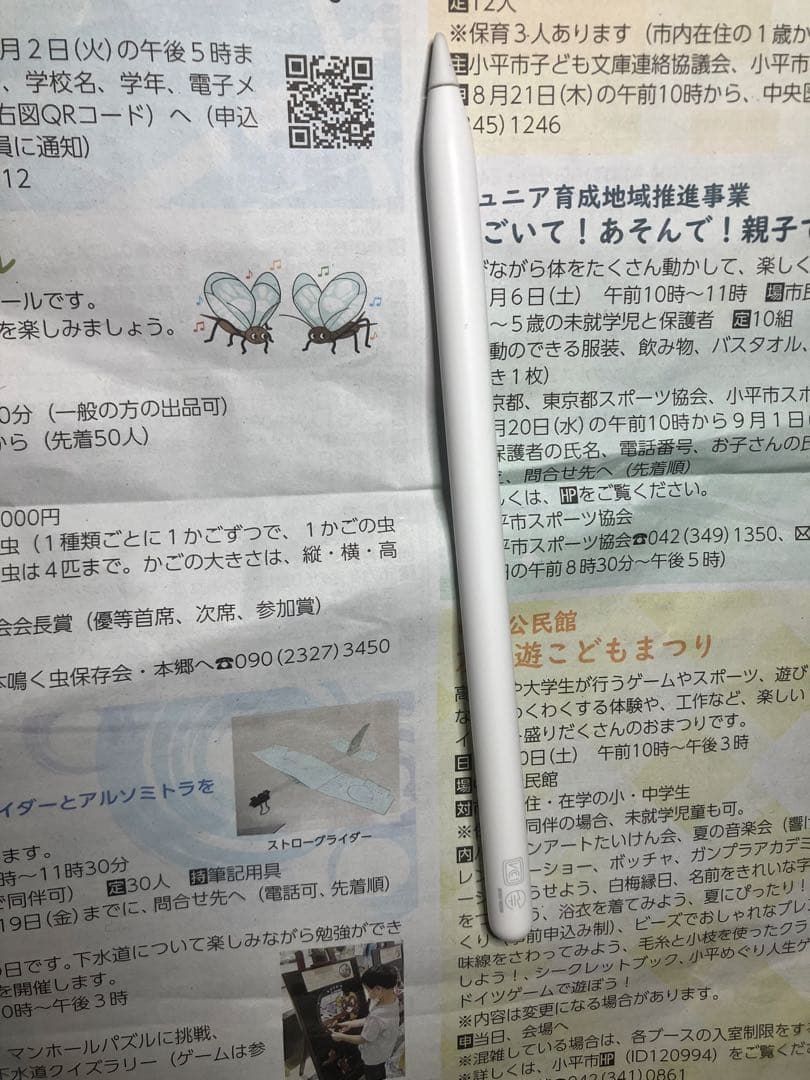 月2日(火)の午後5時ま
、学校名、学年、電子メ
右図QRコード）へ（申込
員に通知）
12
ールです。
を楽しみましょう。
0分（一般の方の出品可）
から（先着50人）
000円
虫（1種類ごとに1かごずつで、1かごの虫
虫は4匹まで。かごの大きさは、縦・横・高
会会長賞（優等首席、次席、参加賞）
鳴く虫保存会・本郷へ☎090(2327)3450
イダーとアルソミトラを
ストローグライダー
ます。
時～11時30分
で同伴可） 定30人 持筆記用具
19日(金)までに、問合せ先へ（電話可、先着順）
の日です。下水道について楽しみながら勉強ができ
を開催します。
0時～午後3時
マンホールパズルに挑戦、
下水道クイズラリー（ゲームは参
定12人
※保育3人あります（市内在住の1歳か
主小平市子ども文庫連絡協議会、小平市
申8月21日(木)の午前10時から、中央図
345)1246
ュニア育成地域推進事業
ごいて！あそんで！親子で
ながら体をたくさん動かして、楽しく
月6日(土) 午前10時～11時 場市民
～5歳の未就学児と保護者 定10組
動のできる服装、飲み物、バスタオル、
き1枚）
京都、東京都スポーツ協会、小平市スポ
月20日(水)の午前10時から9月1日(
保護者の氏名、電話番号、お子さんの氏
、問合せ先へ（先着順）
しくは、HPをご覧ください。
平市スポーツ協会
平市スポーツ協会☎042(349)1350、✉
日の午前8時30分～午後5時）
公民館
遊こどもまつり
高 や大学生が行うゲームやスポーツ、遊び
な わくわくする体験や、工作など、楽しい
イ 盛りだくさんのおまつりです。
日 0日(土) 午前10時～午後3時
場 民館
対 住・在学の小・中学生
※ 同伴の場合、未就学児童も可。
内 ンアートたいけん会、夏の音楽会（響け
レン ーショー、ボッチャ、ガンプラアカデミ
ー うせよう、白梅縁日、名前をきれいな字
をつ う、浴衣を着てみよう、夏にぴったり！
くり（事前申込み制）、ビーズでおしゃれなブレ
味線をさわってみよう、毛糸と小枝を使ったクラ
しよう！、シークレットブック、小平めぐり人生ゲ
ドイツゲームで遊ぼう！
※内容は変更になる場合があります。
申当日、会場へ
※混雑している場合は、各ブースの入室制限をする
※詳しくは、小平市HP（ID120994）をご覧くださ
☎042(341)0861